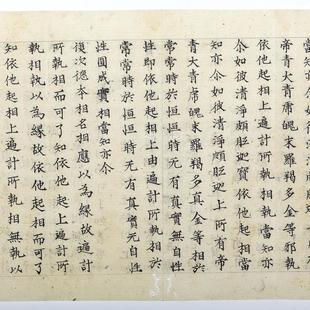 當知亦尒如彼清淨頗胝迦上所有
帝青大青虎魄末羅羯多金等邪執
依他起相上遍計所執相執當知亦
尒如彼清淨頗胝迦寶依他起相當
知亦尒如彼清淨頗胝迦上所有帝
青大青虎魄末羅羯多真金等相於
常常時於恒恒時无有真實无自性
性即依他起相上由遍計所執相於
常常時於恒恒時无有真實无自性
性圓成實相當知亦尒
復次德本相名相應以為緣故遍計
所執相而可了知依他起相上遍計所
執相執以為緣故依他起相而可了
知依他起相上遍計所執相無執以